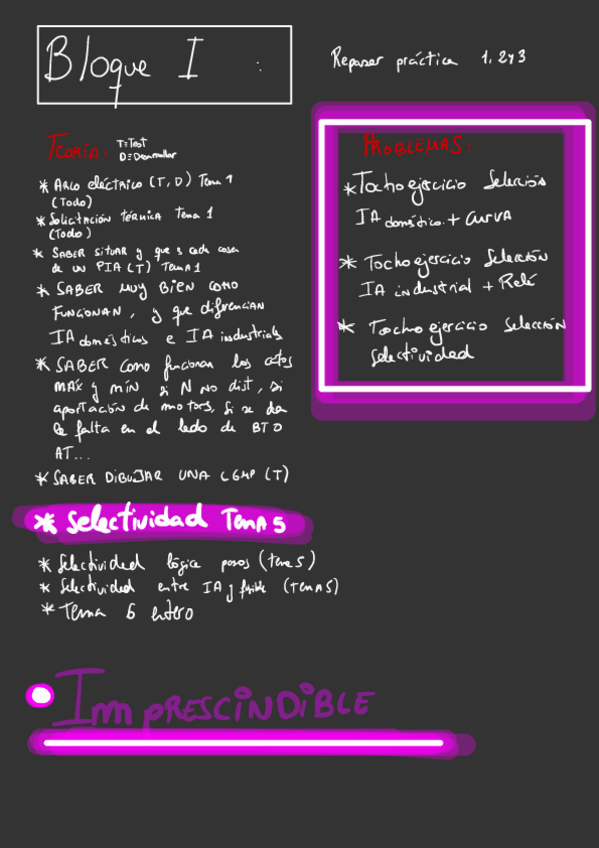 Bloque I :
Repasar práctica 1, 2 y 3
TEORÍA: T=Test
D=Desarrollar
* Arco eléctrico (T, D) Tema 1
(Todo)
* Solicitación térmica Tema 1
(Todo)
* SABER SITUAR y que es cada cosa
de un PIA (T) TEMA 1
* SABER MUY BIEN COMO
FUNCIONAN, y que diferencian
IA domésticos e IA industriales
* SABER como funcionan los cctos
MAX y MIN si N no dist, si
aportación de motores, si se da
la falta en el lado de BT o
AT...
* SABER DIBUJAR UNA CGMP (T)
* Selectividad TEMA 5
* Selectividad lógica pasos (tema 5)
* Selectividad entre IA y fusible (TEMA 5)
* Tema 6 entero
PROBLEMAS:
* Tocho ejercicio Selección
IA doméstico + CURVA
* Tocho ejercicio Selección
IA industrial + Relé
* Tocho ejercicio selección
selectividad
IMPRESCINDIBLE